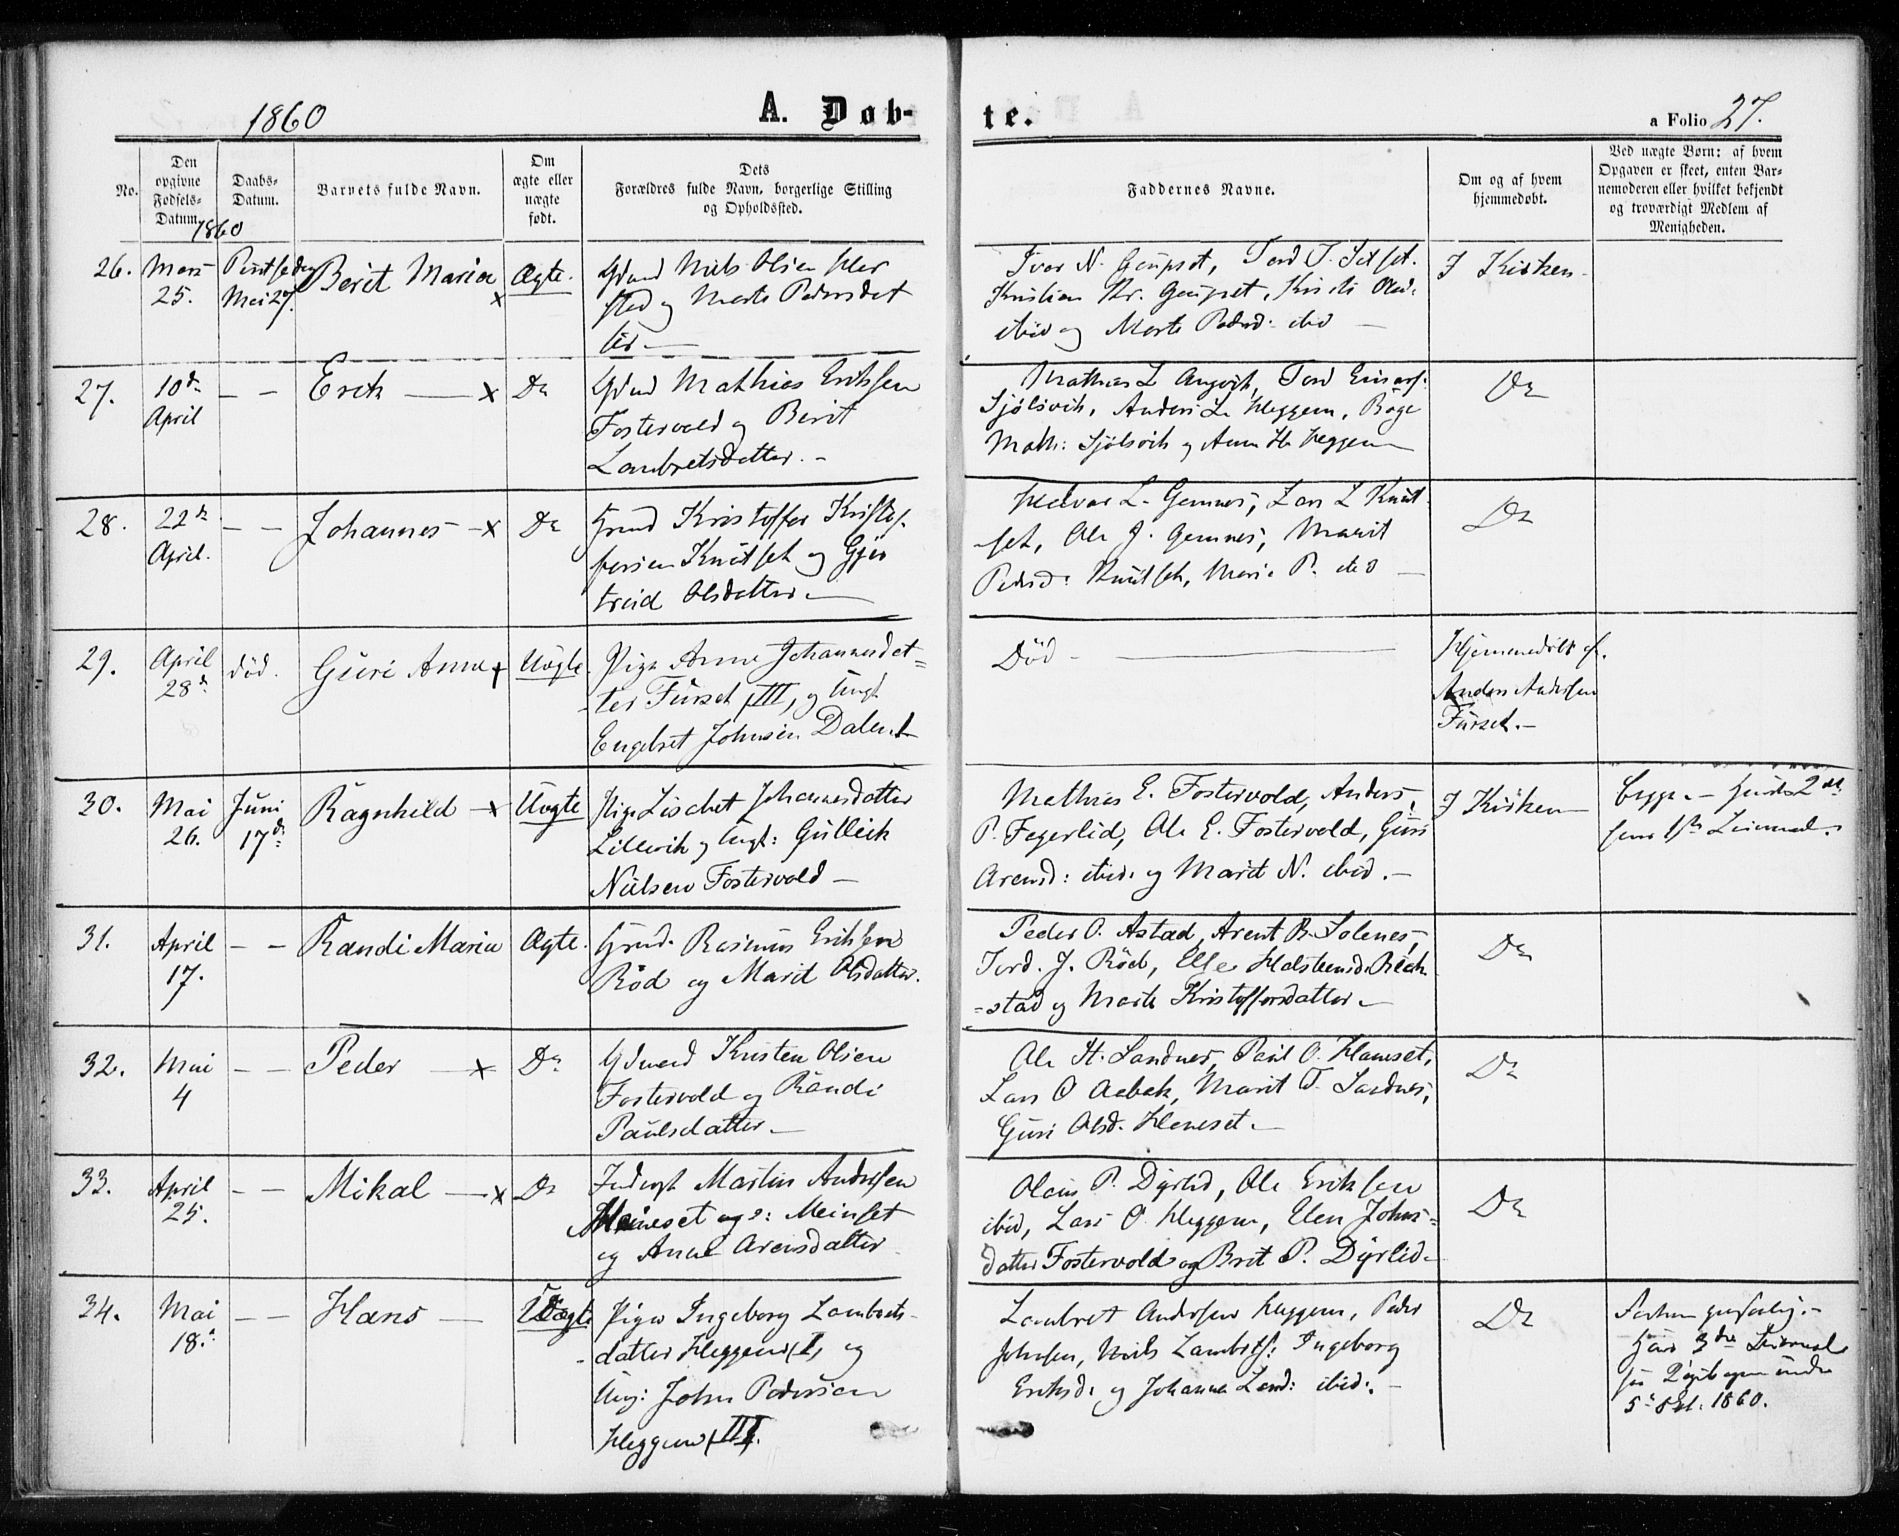 1860
A. Døb-
te.
a Folio 27.
No.
Den
opgivne
Fødsels-
Datum.
Daabs-
Datum.
Barnets fulde Navn.
Om
ægte eller
uægte
født.
Dets
Forældres fulde Navn, borgerlige Stilling
og Opholdssted.
Faddernes Navne.
Om og af hvem
hjemmedøbt.
Ved uægte Børn: af hvem
Opgaven er skeet, enten Bar-
nemoderen eller hvilket bekjendt
og troværdigt Medlem af
Menigheden.
1860
26.
Mars
25.
Mai 27.
Berit Maria x
Ægte.
Niels Olsen
og Marte Pedersdat
ter —
Ivar N. Gimpset, Tord T.
Kristian Kr. Gimpset,
ibid og Marte Pedersd: ibid —
I Kirken
27.
10de
April
— —
Erik — x
Do
Gbmd Mathias Eriksen
Fostervold og Berit
Lambretsdatter. -
Mathias L Angvik, Tord
Sjölsvik, Anders L. Heggem, Böge
Math: Sjölsvik og Anne H. Heggem
Do
28.
22de
April.
— —
Johannes - x
Do
Gbmd Kristoffer Kristof-
fersen Knutset og Gjer
traid Olsdatter —
Halvor L. Gemnes, Lars L Knut
-set, Ole J. Gemnes, Marit
Pedersd: Knutset, Marie P. ibid —
Do
29.
April
28de
död.
Guri Anne x
Uægte
Pige Anne Johannesdat=
-ter Furset (III, og Ungk
Engebret Johnsen Dalen
Död — —
Hjemmedöbt af
Anders Andersen
Furset. —
30.
Mai
26.
Juni
17de
Ragnhild - x
Uægte
Pige Lisebet Johannesdatter
Lillevik og Ungk: Gulleik
Nielsen Fostervold —
Mathias E. Fostervold, Anders
P. Fegerlid, Ole E. Fostervold, Guri
Arensd: ibid. og Marit N. ibid. —
I Kirken —
Begge — hendes 2det
hans 1ste Leiermaal.
31.
April
17.
— —
Randi Maria
Ægte.
Gbmd. Rasmus Eriksen
Röd og Marit Olsdatter.
Peder O. Astad, Arent B. Solenes,
Tord. J. Röd, Elle Halstensd.
-stad og Marte Kristoffersdatter —
Do
32.
Mai
4
— —
Peder — x
Do
Gbmand Kristen Olsen
Fostervold og Randi
Paulsdatter —
Ole H. Sandnes, Paul O. Heinset,
Lars O Aebak, Marit T. Sandnes,
Guri Olsd. Heinset. —
Do
33.
April
25.
— —
Mikal — x
Do
Inderst Martin Andersen
Meinset
og Anne Arensdatter
Olaus P. Dyrlid, Ole Eriksen
ibid, Lars O. Heggem, Elen Johns=
datter Fostervold og Brit P. Dyrlid —
Do
34.
Mai
18de
— —
Hans —
Uægte
Pige Ingeborg Lambrets-
-datter Heggem (I, og
Ung: John Pedersen
Heggem (III.
Lambret Andersen Heggem, Peder
Johnsen, Niels Lambretss: Ingeborg
Eriksd: og Johanna Land: ibid: —
Do
hans 3die Leiermaal
5te 1860.